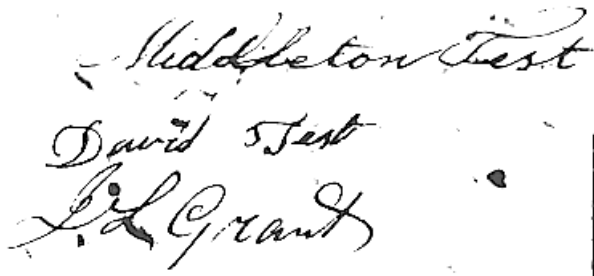 Middleton Test
David Test
L Grant